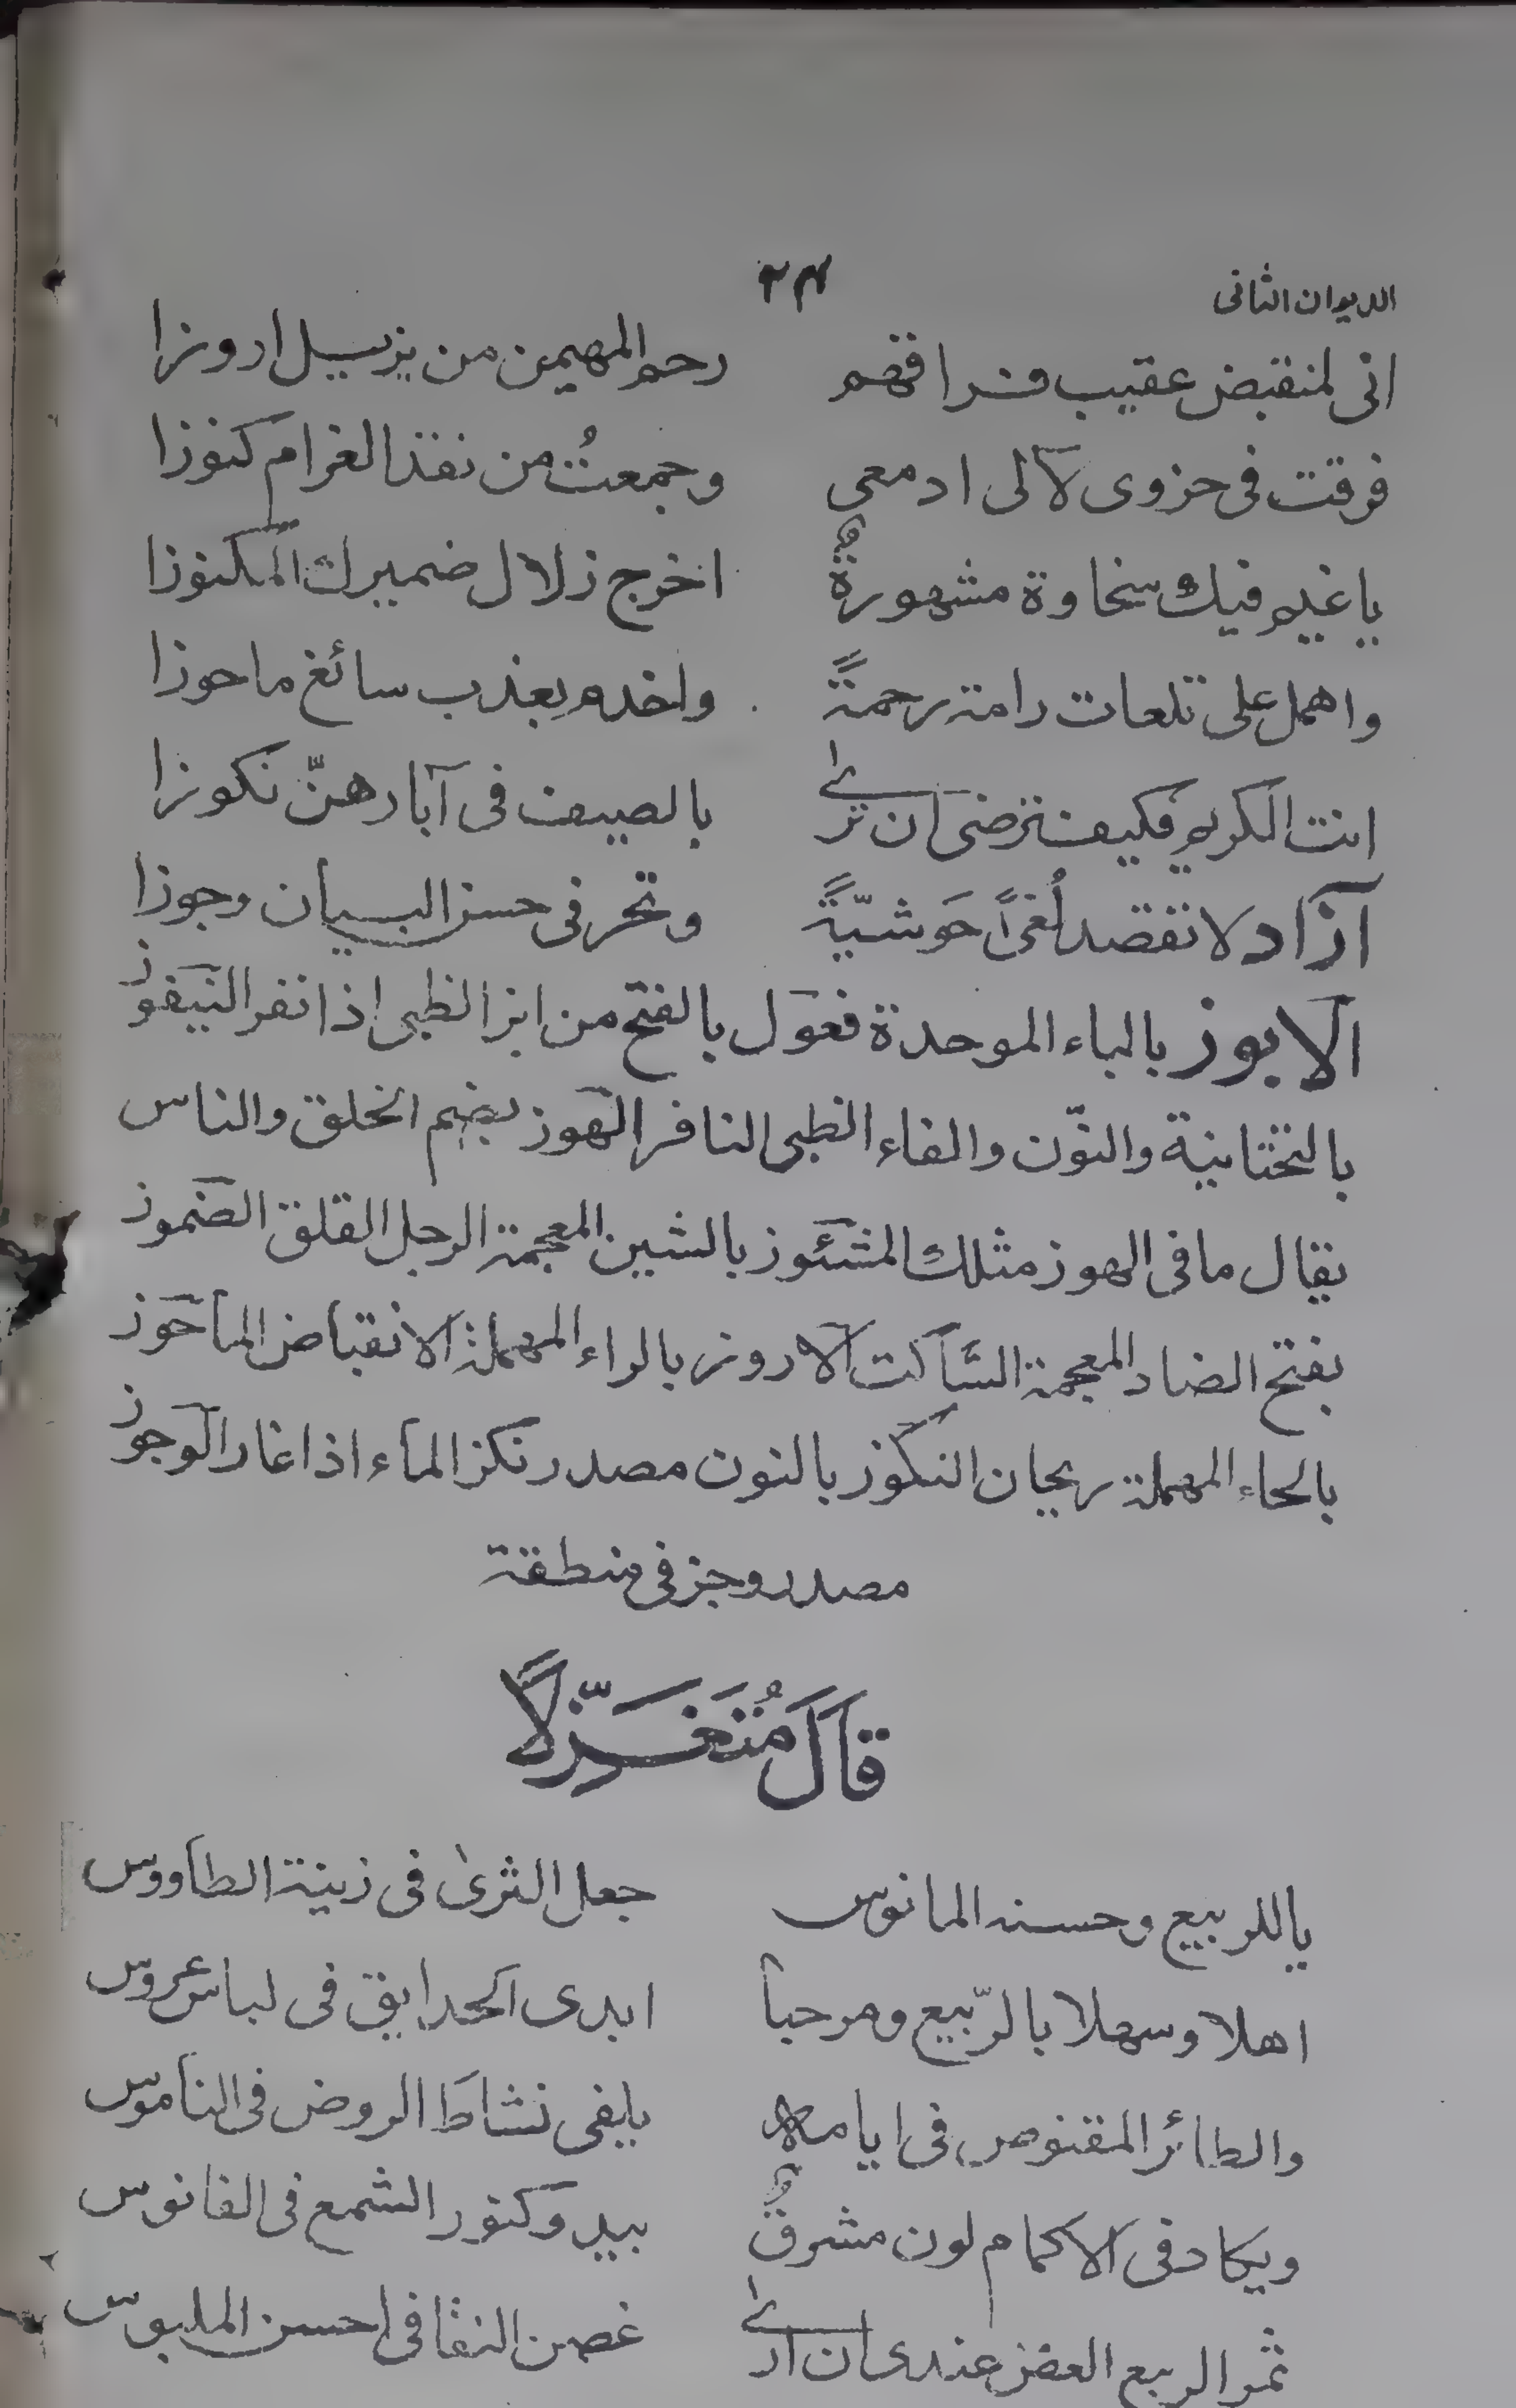 الديوان الثانى
٢٣
انى لمنقبض عقيب فراقهم رحم المهيمن من يزيل اروزا
فرقت فى حزوى لآلى ادمعى وجمعتُ من نقد الغرام كنوزا
يا غيم فيك سخاوة مشهورةٌ اخرج زلال ضميرك المكنوزا
واهمل على تلعات رامة رحمةً واخدم بعذب سائغ ماحوزا
انت الكريم فكيف ترضى ان ترى بالصيف فى آبارهنّ نكوزا
آزاد لا تقصد لُغىً حَوشيّةً وتحر فى حسن البيان وجوزا
الابوز بالباء الموحدة فعول بالفتح من ابز الظبى اذا نفر النيفوز
بالتحتانية والنّون والفاء الظبى النافر الهوز بضم الخلق والناس
يقال ما فى الهوز مثلك المشئوز بالشين المعجمة الرجل القلق الضموز
بفتح الضاد المعجمة السّاكت الاروز بالراء المهملة الانقباض الماحوز
بالحاء المهملة ريحان النكوز بالنون مصدر نكز الماء اذا غار الوجوز
مصدر وجز فى منطقة
قَالَ مُتَغَزِّلًا
يا للربيع وحسنه المانوس جعل الثرىٰ فى زينة الطاووس
اهلا وسهلا بالرّبيع ومرحبا ابدى الحدايق فى لباس عروس
والطائر المقنوص فى ايامه يلفى نشاط الروض فى الناموس
ويكاد فى الاكمام لون مشرقٌ يبدو كنور الشمع فى الفانوس
ثمر الربيع الغض عندى ان ارى غصن النقا فى احسن الملبوس